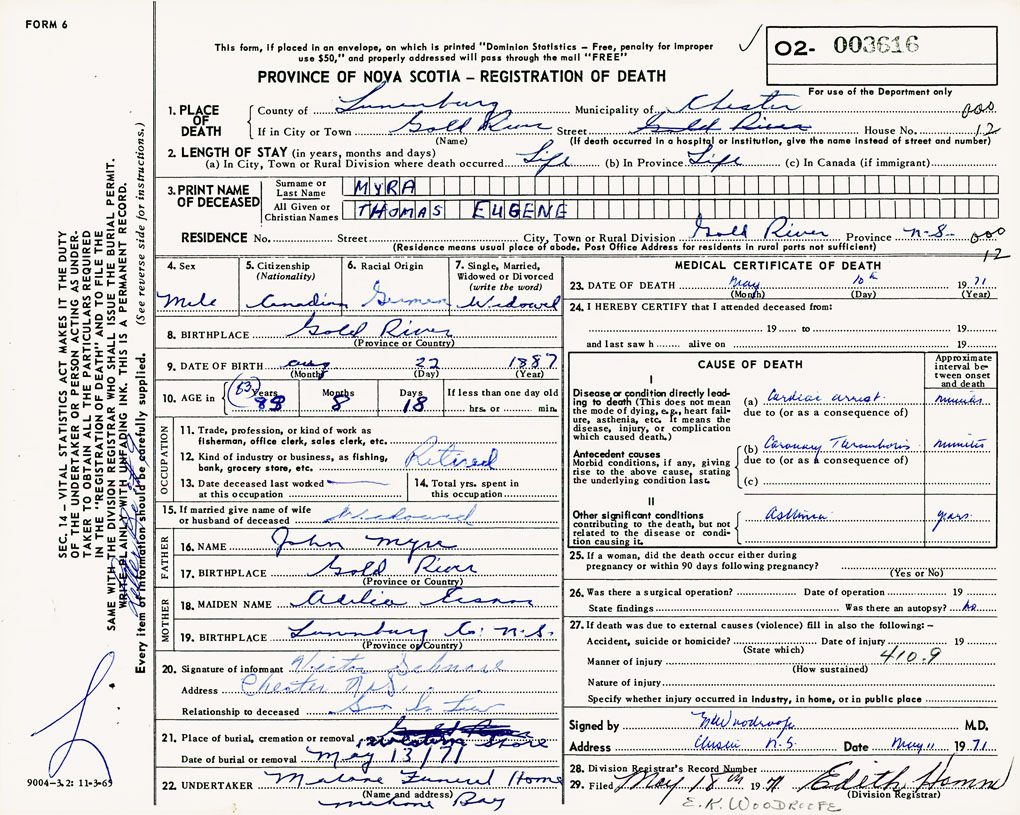 FORM 6
This form, if placed in an envelope, on which is printed "Dominion Statistics – Free, penalty for improper
use $50," and properly addressed will pass through the mail "FREE"
PROVINCE OF NOVA SCOTIA – REGISTRATION OF DEATH
02- 003616
For use of the Department only
1. PLACE OF DEATH
County of Lunenburg Municipality of Chester
If in City or Town Gold River Street Gold River House No.
000
12
(Name) (If death occurred in a hospital or institution, give the name instead of street and number)
2. LENGTH OF STAY (in years, months and days)
(a) In City, Town or Rural Division where death occurred Life (b) In Province Life (c) In Canada (if immigrant)
3. PRINT NAME OF DECEASED
Surname or Last Name MYRA
All Given or Christian Names THOMAS EUGENE
RESIDENCE No. Street City, Town or Rural Division Gold River Province N.S. 000
12
(Residence means usual place of abode. Post Office Address for residents in rural parts not sufficient)
4. Sex
Male
5. Citizenship (Nationality)
Canadian
6. Racial Origin
German
7. Single, Married, Widowed or Divorced (write the word)
Widowed
8. BIRTHPLACE Gold River
(Province or Country)
9. DATE OF BIRTH Aug 22 1887
(Month) (Day) (Year)
10. AGE in Years 83 Months 8 Days 18 If less than one day old
hrs. or min.
OCCUPATION
11. Trade, profession, or kind of work as
fisherman, office clerk, sales clerk, etc.
12. Kind of industry or business, as fishing,
bank, grocery store, etc. Retired
13. Date deceased last worked
at this occupation
14. Total yrs. spent in
this occupation
15. If married give name of wife
or husband of deceased Widowed
FATHER
16. NAME John Myra
17. BIRTHPLACE Gold River
(Province or Country)
MOTHER
18. MAIDEN NAME Adelia
19. BIRTHPLACE Lunenburg Co. N.S.
(Province or Country)
20. Signature of informant Victor Schnare
Address Chester N.S.
Relationship to deceased Son In Law
21. Place of burial, cremation or removal Western Shore
Date of burial or removal May 13/71
22. UNDERTAKER Mahone Funeral Home
(Name and address)
Mahone Bay
MEDICAL CERTIFICATE OF DEATH
23. DATE OF DEATH May 10th 1971
(Month) (Day) (Year)
24. I HEREBY CERTIFY that I attended deceased from:
19 to 19
and last saw h alive on 19
CAUSE OF DEATH
Approximate interval between onset and death
I
Disease or condition directly leading to death (This does not mean the mode of dying, e.g., heart failure, asthenia, etc. It means the disease, injury, or complication which caused death.)
(a) Cardiac arrest minutes
due to (or as a consequence of)
Antecedent causes
Morbid conditions, if any, giving rise to the above cause, stating the underlying condition last.
(b) Coronary Thrombosis minutes
due to (or as a consequence of)
(c)
II
Other significant conditions
contributing to the death, but not related to the disease or condition causing it.
Asthma years
25. If a woman, did the death occur either during
pregnancy or within 90 days following pregnancy?
(Yes or No)
26. Was there a surgical operation? Date of operation 19
State findings Was there an autopsy? No
27. If death was due to external causes (violence) fill in also the following: –
Accident, suicide or homicide? Date of injury 19
(State which)
410.9
Manner of injury
(How sustained)
Nature of injury
Specify whether injury occurred in industry, in home, or in public place
Signed by EKWoodroofe M.D.
Address Chester N.S. Date May 11 1971
28. Division Registrar's Record Number
29. Filed May 18th 1971 Edith
(Division Registrar)
E.K. WOODROOFE
SEC. 14 – VITAL STATISTICS ACT MAKES IT THE DUTY
OF THE UNDERTAKER OR PERSON ACTING AS UNDER-
TAKER TO OBTAIN ALL THE PARTICULARS REQUIRED
IN THE "REGISTRATION OF DEATH" AND TO FILE THE
SAME WITH THE DIVISION REGISTRAR WHO SHALL ISSUE THE BURIAL PERMIT.
WRITE PLAINLY WITH UNFADING INK. THIS IS A PERMANENT RECORD.
Every item of information should be carefully supplied. (See reverse side for instructions.)
9004-3.2: 11-3-69